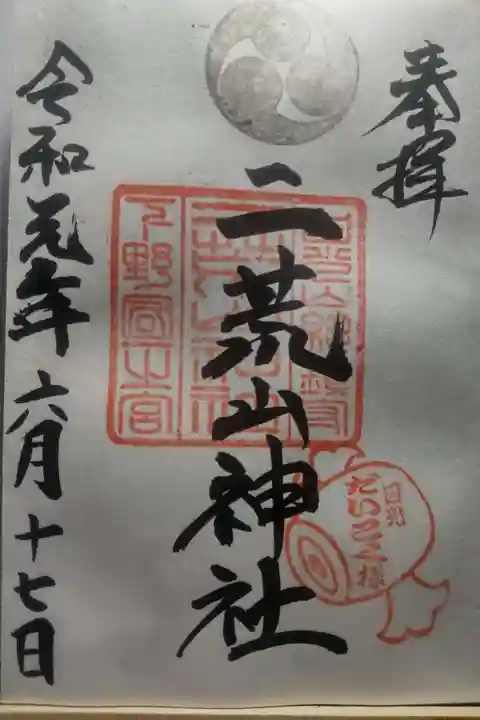 奉拝
二荒山神社
下野国一之宮
日光
だいこく様
令和元年六月十七日